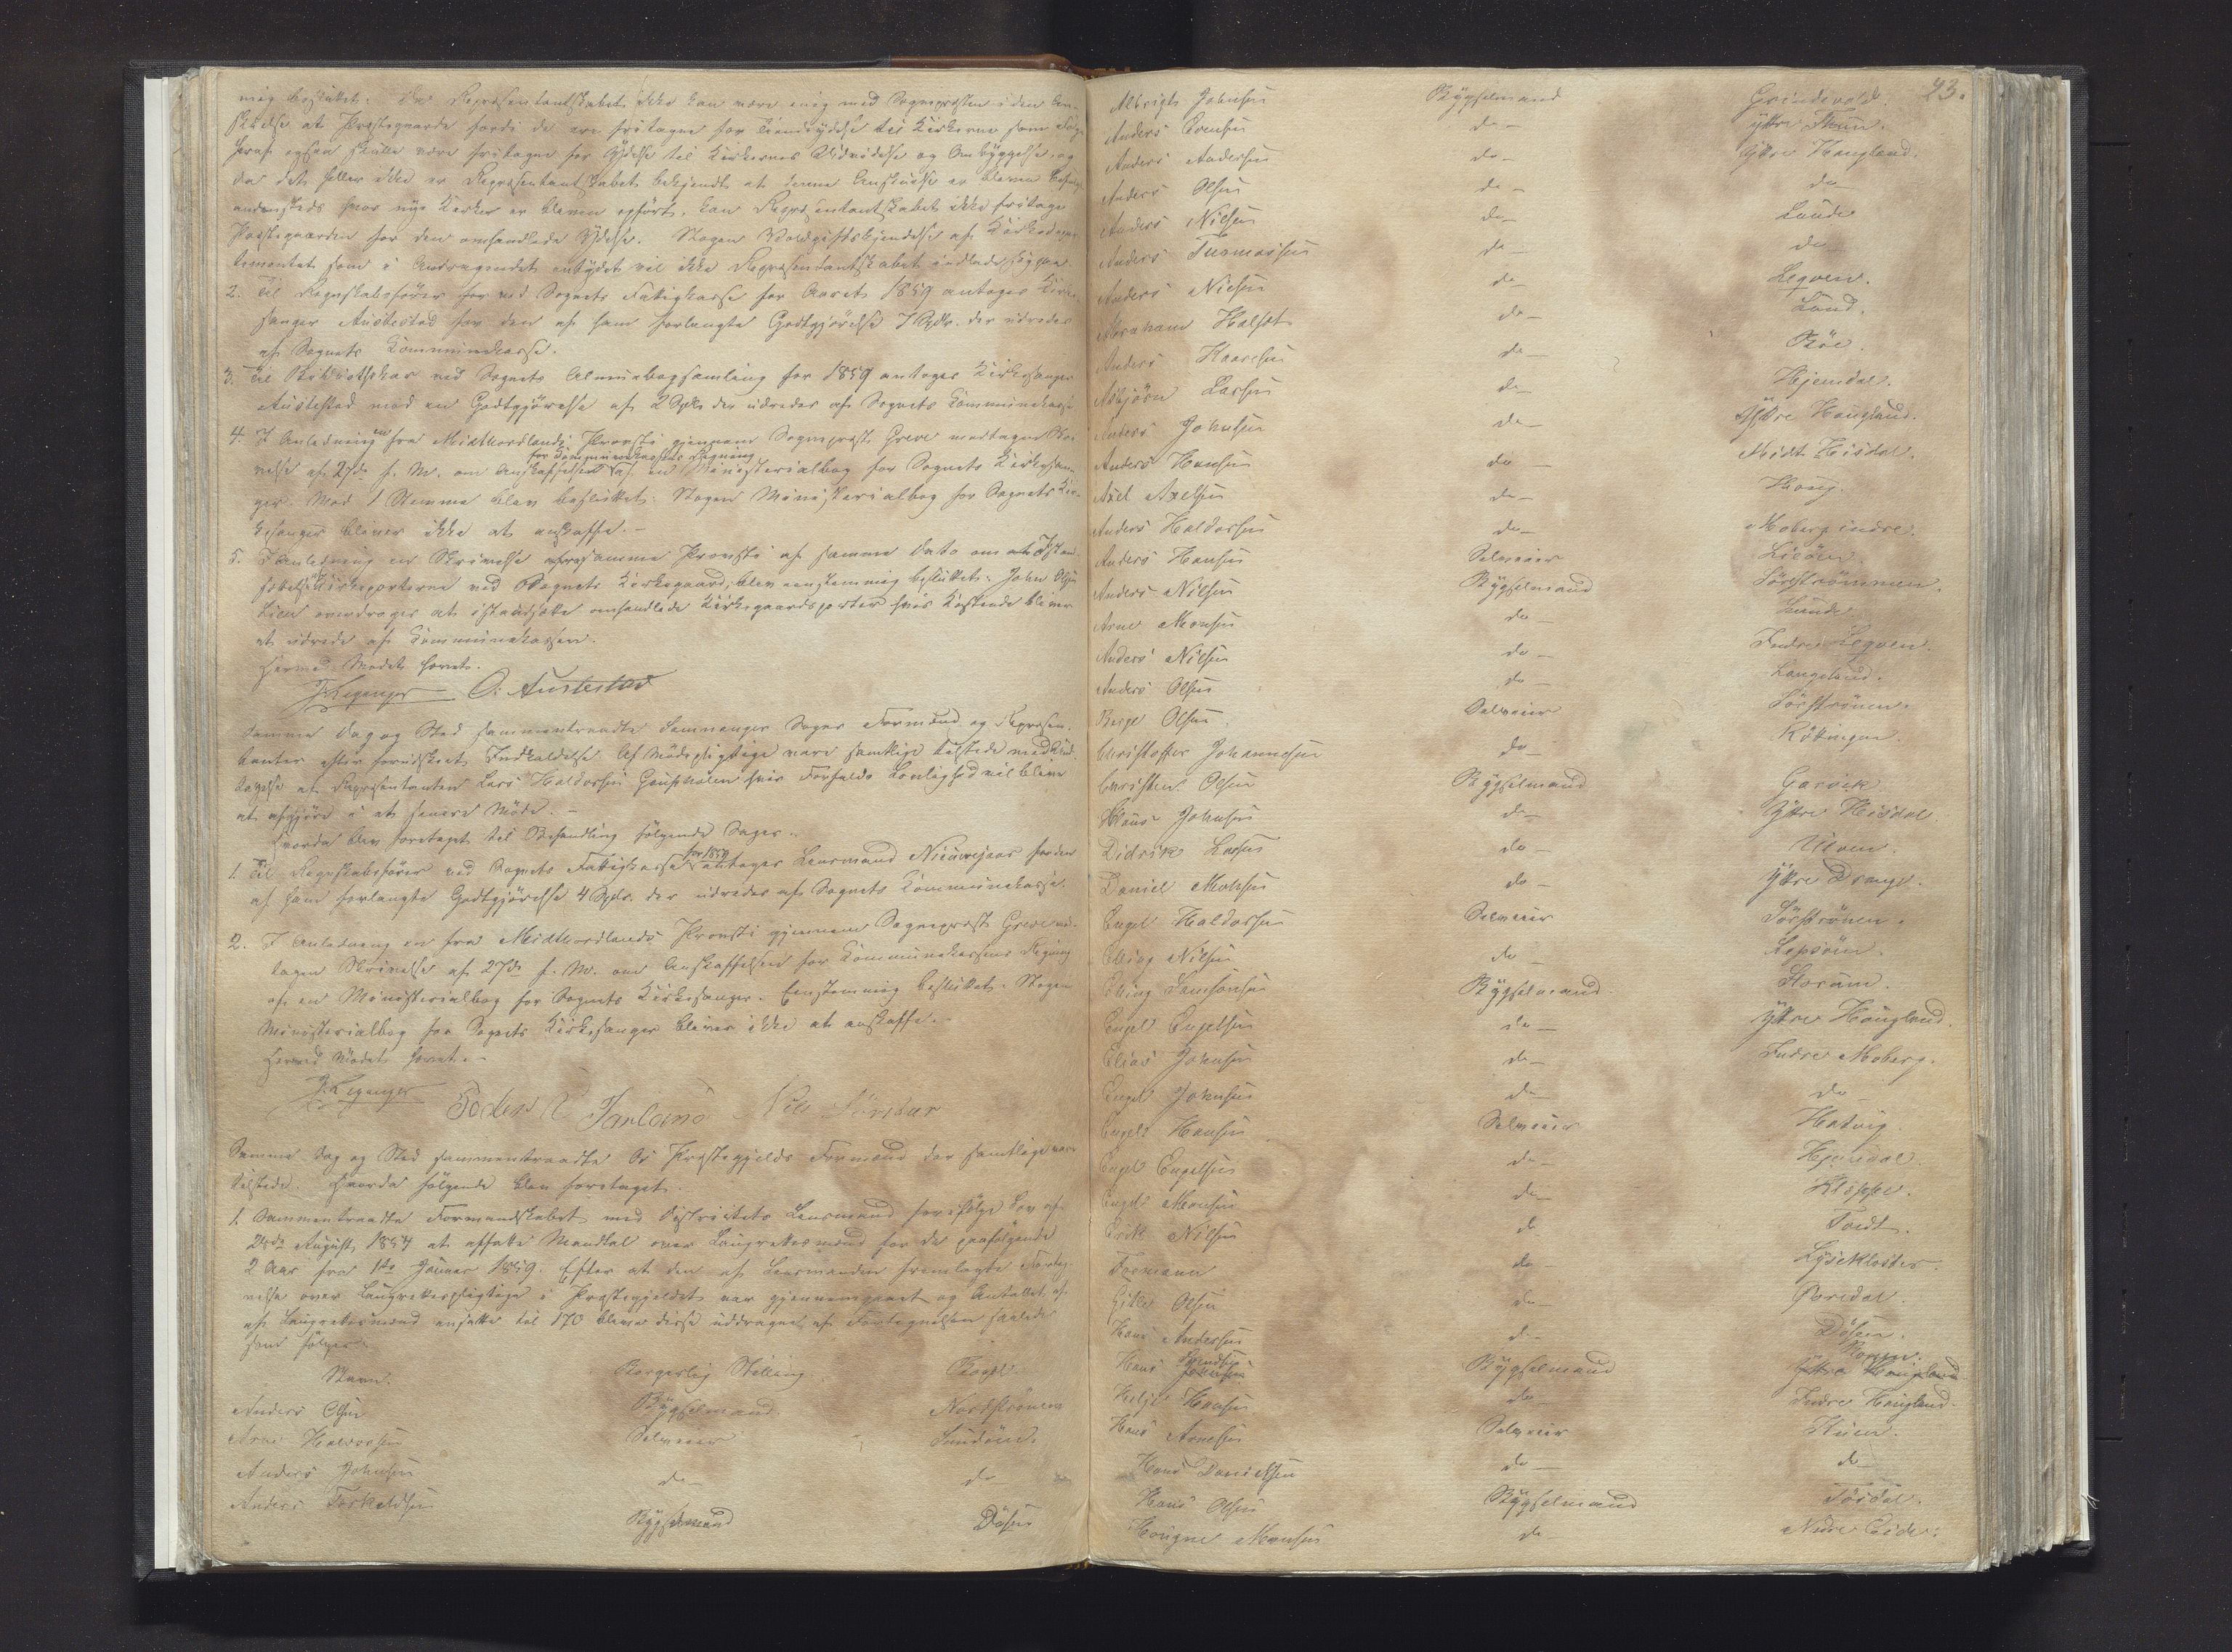 mig besluttet: Da Repræsentantskabet ikke kan være enig med Sognepræsten i den An-
skuelse at Præstegaarde fordi de ere fritagne for Tiendeydelse til Kirkerne som Følge
heraf ogsaa skulle være fritagne for Ydelse til Kirkernes Udvidelse og Ombyggelse, og
da det heller ikke er Repræsentantskabet bekjendt at denne Anskuelse er bleven
andensteds hvor nye Kirker er bleven opført, kan Repræsentantskabet ikke fritage
Præstegaarden for den omhandlede Ydelse. Nogen Voldgiftskjendelse af Kirkedepar-
tementet som i Andragendet antydet vil ikke Repræsentantskabet indlade sig paa.
2. Til Regnskabsfører for ved Sognets Fattigkasse for Aaret 1859 antages Kirke-
sanger Austestad for den af ham forlangte Godtgjørelse 7 Spdlr. der udredes
af Sognets Kommunekasse.
3. Til Bibliothekar ved Sognets Almuebogsamling for 1859 antages Kirkesanger
Austestad mod en Godtgjørelse af 2 Spdlr. der udredes af Sognets Kommunekasse
4. I Anledning en fra Midthordlands Provsti gjennem Sognepræst Greve modtagen Skri-
for Kommunekassens Regning
velse af 27de f. M. om Anskaffelsen af en Ministerialbog for Sognets Kirkesan-
ger. Mod 1 Stemme blev besluttet: Nogen Ministerialbog for Sognets Kir-
kesanger bliver ikke at anskaffe. –
5. I Anledning en Skrivelse fra samme Provsti af samme Dato om Istand-
sættelse Kirkeporterne ved Sognets Kirkegaard, blev eenstemmig besluttet: John Olsen
Lien overdrages at istandsætte omhandlede Kirkegaardsporter hvis Kostende bliver
at udrede af Kommunekassen.
Hermed Mødet hævet.
J. Leganger O. Austestad
Samme Dag og Sted sammentraadte Samnanger Sogns Formænd og Repræsen-
tanter efter forudskeet Indkaldelse. Af Mødepligtige vare samtlige tilstede med Und-
tagelse af Repræsentanten Lars Haldorsen hvis Forfalds Lovlighed vil blive
at afgjøre i et senere Møde. –
Hvorda blev foretaget til Behandling følgende Sager:
1. Til Regnskabsfører ved Sognets Fattigkasse for 1859 antages Lensmand for den
af ham forlangte Godtgjørelse 4 Spdlr. der udredes af Sognets Kommunekasse.
2. I Anledning en fra Midthordlands Provsti gjennem Sognepræst Greve mod-
tagen Skrivelse af 27de f. M. om Anskaffelsen for Kommunekassens Regning
af en Ministerialbog for Sognets Kirkesanger. Eenstemmig besluttet: Nogen
Ministerialbog for Sognets Kirkesanger bliver ikke at anskaffe. –
Hermed Mødet hævet. –
J. Leganger
Samme Dag og Sted sammentraadte Os Præstegjelds Formænd der samtlige vare
tilstede. Hvorda følgende blev foretaget.
1. Sammentraadte Formandskabet med Districtets Lensmand for ifølge Lov af
August 1854 at affatte Mandtal over Laugrettesmænd for de paafølgende
2 Aar fra 1ste Januar 1859. Efter at den af Lensmanden fremlagte Forteg-
nelse over Laugrettespligtige i Præstegjeldet var gjennemgaaet og Antallet af
af Laugrettesmænd ansatte til 170 bleve disse uddragne af Fortegnelsen saaledes
som følger:
Navn. Borgerlig Stilling. Bopæl.
Anders Olsen Bygselmand Nordstrønen
Arne Haldorsen Selveier Sundøen.
Anders Johnsen do – do
Anders Torkeldsen Bygselmand Døsen
23.
Albrigt Johnsen Bygselmand Grindevold.
Anders do – ytre
Anders Andersen do – Ytre Haugland.
Anders Olsen do – do
Anders Nielsen do – Lunde
Anders Thomassen do – do
Anders Nielsen do – Legven.
Abraham do – Sand.
Anders do – Røe.
Asbjørn Larsen do – Hjemdal.
Anders Johnsen do – Ytre Haugland.
Anders Hansen do – Midt Hisdal.
Axel Axelsen do – Haug.
Anders Haldorsen do – Moberg indre.
Anders Hansen Selveier
Anders Nilsen Bygselmand Sørstrømmen.
Arne Monsen do – Lunde
Anders Nilsen do – Indre Legven.
Anders Olsen do – Langeland.
Berge Olsen Selveier Sørstrønen.
Christoffer Johannesen do – Røttingen.
Christen Olsen Bygselmand Gaasvik
Johnsen do – Ytre Hisdal.
Didrik Larsen do – Ulven.
Daniel Monsen do – Ytre Drange.
Engel Haldorsen Selveier Sørstrønen.
Elling Nielsen do – Lepsøen.
Elling Samsonsen Bygselmand Storum.
Engel Engelsen do – ytre Haugland.
Elias Johnsen do – Indre Moberg.
Engel Johnsen do – do
Engel Hansen Selveier Hatvig.
Engel Engelsen do – Hjemdal.
Engel Monsen do – Kleppe.
Erik Nilsen do Tveit.
Formann do – Lysekloster.
Olsen do – Boredal.
Hans Andersen do – Døsen.
Hans Bygselmand Moberg.
Helge Hansen do – Indre Haugland.
Hans Arnesen Selveier Tuen.
Hans Danielsen do – do –
Hans Olsen Bygselmand
Haugne Monsen do – Nedre Eide.